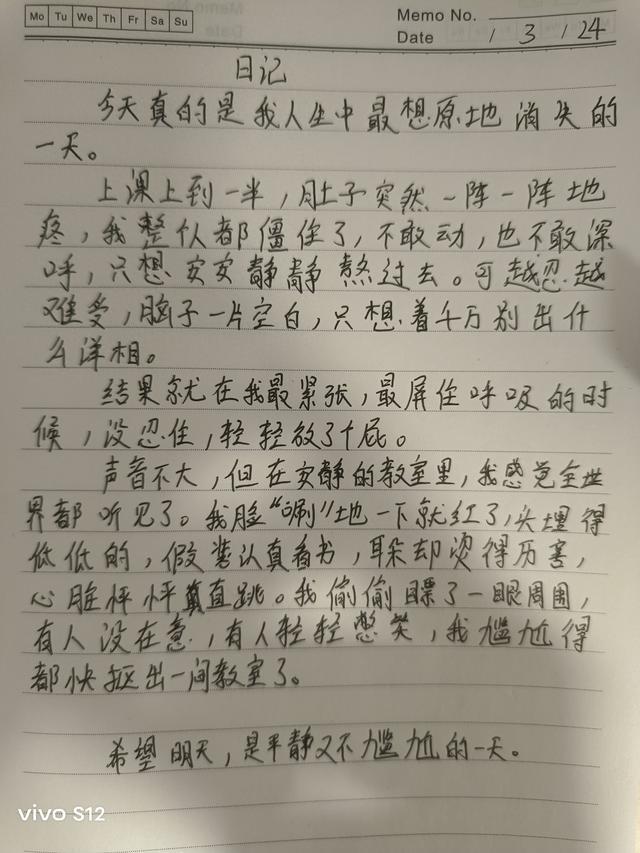 Mo Tu We Th Fr Sa Su
Memo No.
Date / 3 / 24
日记
今天真的是我人生中最想原地消失的
一天。
上课上到一半，肚子突然一阵一阵地
疼，我整个人都僵住了，不敢动，也不敢深
呼，只想安安静静熬过去。可越忍越
难受，脑子一片空白，只想着千万别出什
么洋相。
结果就在我最紧张，最屏住呼吸的时
候，没忍住，轻轻放了个屁。
声音不大，但在安静的教室里，我感觉全世
界都听见了。我脸“唰”地一下就红了，头埋得
低低的，假装认真看书，耳朵却烫得厉害，
心脏怦怦直跳。我偷偷瞟了一眼周围，
有人没在意，有人轻轻憋笑，我尴尬得
都快抠出一间教室了。
希望明天，是平静又不尴尬的一天。
vivo S12